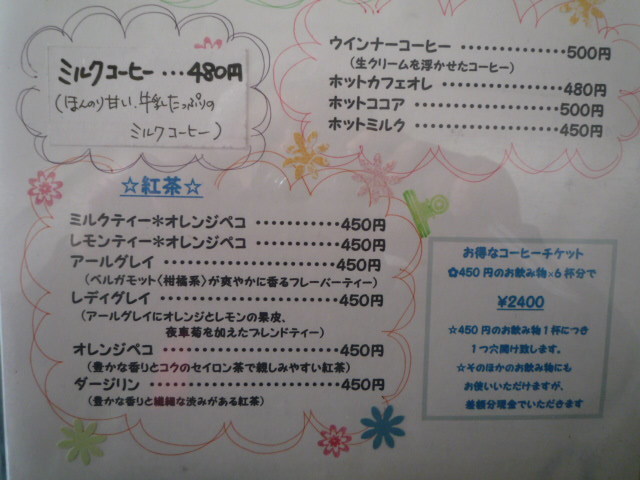 ミルクコーヒー…480円
(ほんのり甘い、牛乳たっぷりの
ミルクコーヒー)
ウインナーコーヒー ………………500円
(生クリームを浮かせたコーヒー)
ホットカフェオレ ………………480円
ホットココア ………………500円
ホットミルク ………………450円
☆紅茶☆
ミルクティー＊オレンジペコ …………450円
レモンティー＊オレンジペコ …………450円
アールグレイ ………………450円
(ベルガモット〈柑橘系〉が爽やかに香るフレーバーティー)
レディグレイ ………………450円
(アールグレイにオレンジとレモンの果皮、
夜車菊を加えたブレンドティー)
オレンジペコ ………………450円
(豊かな香りとコクのセイロン茶で親しみやすい紅茶)
ダージリン ………………450円
(豊かな香りと繊細な渋みがある紅茶)
お得なコーヒーチケット
✿450円のお飲み物×6杯分で
¥2400
☆450円のお飲み物1杯につき
1つ穴開け致します。
☆そのほかのお飲み物にも
お使いいただけますが、
差額分現金でいただきます